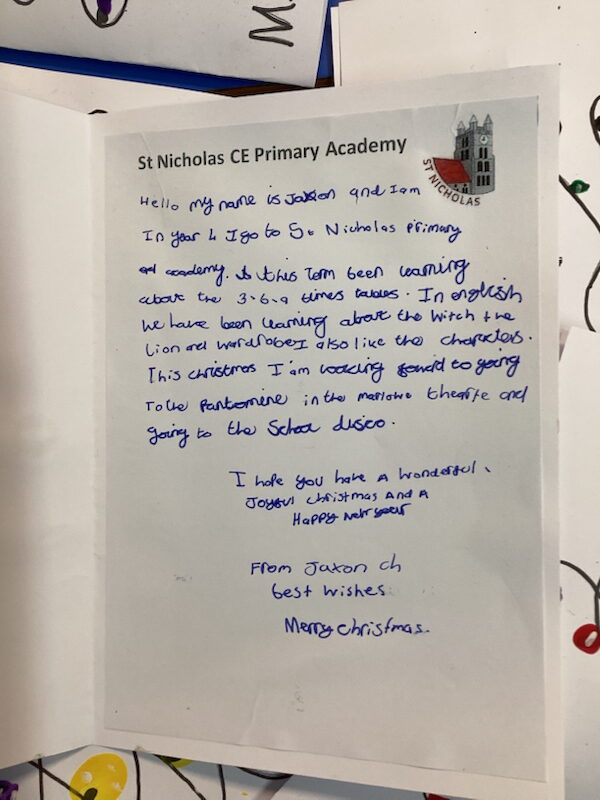 M.
St Nicholas CE Primary Academy
ST NICHOLAS
Hello my name is Jaxon and I am
In year 4 I go to St Nicholas Primary
academy. this Term been learning
about the 3.6.9 times tables. In english
We have been learning about the Witch the
Lion and wardrobe I also like the characters.
This christmas I am looking forwd to going
To the Pantomine in the marlowe thearte and
going to the School disco.
I hope you have A Wonderful,
Joyful christmas And A
Happy New year
From Jaxon ch
best wishes
Merry christmas.